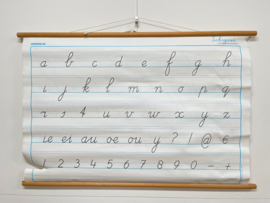 a b c d e f g h
i j k l m n o p q
r s t u v w x y z
ie ei au oe ou y ? ! @ €
1 2 3 4 5 6 7 8 9 0 . +